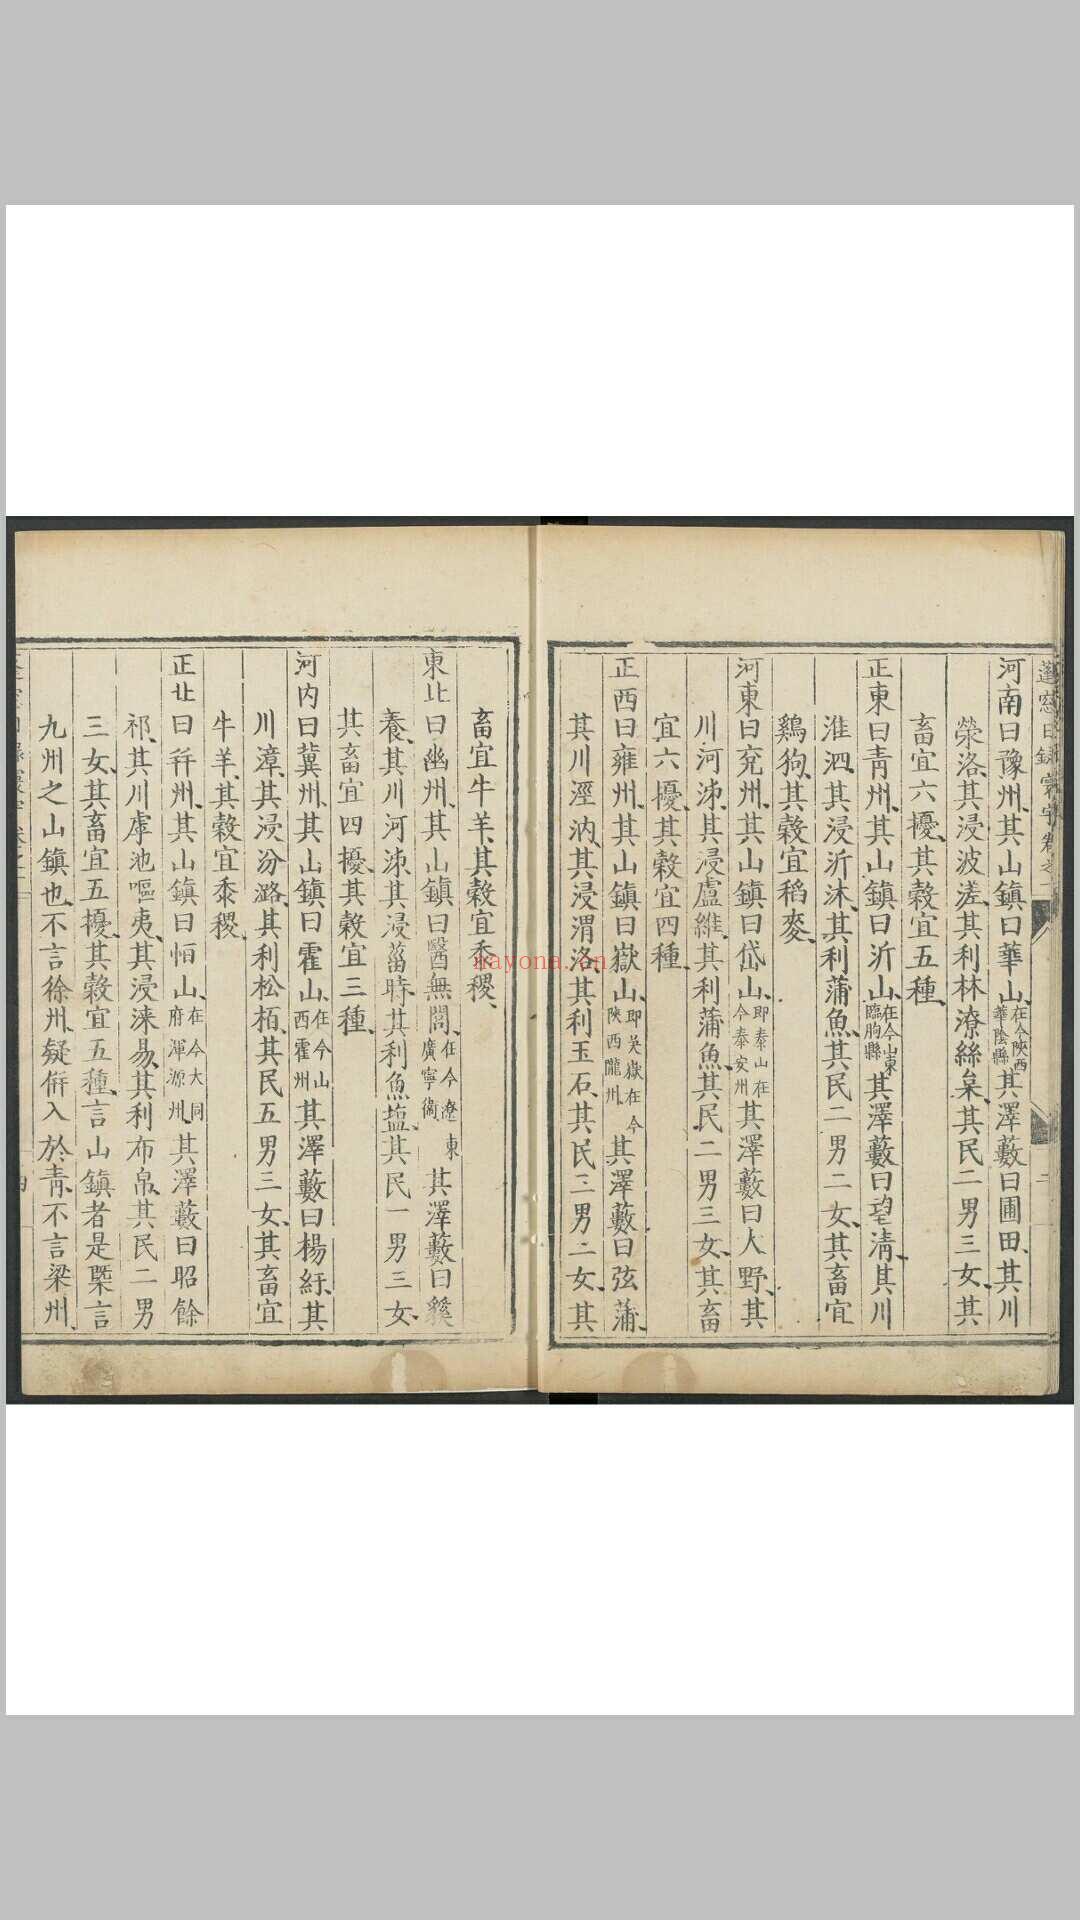 蓬窓日錄 寰宇卷之一
河南曰豫州其山鎮曰華山在今陝西華陰縣其澤藪曰圃田其川
滎洛其浸波溠其利林漆絲枲其民二男三女其
畜宜六擾其穀宜五種
正東曰青州其山鎮曰沂山在今山東臨朐縣其澤藪曰望清其川
淮泗其浸沂沭其利蒲魚其民二男二女其畜宜
鷄狗其穀宜稻麥
河東曰兖州其山鎮曰岱山即泰山在今泰安州其澤藪曰大野其
川河泲其浸盧維其利蒲魚其民二男三女其畜
宜六擾其穀宜四種
正西曰雍州其山鎮曰嶽山即吳嶽在今陝西隴州其澤藪曰弦蒲
其川涇汭其浸渭洛其利玉石其民三男二女其
畜宜牛羊其穀宜黍稷
東北曰幽州其山鎮曰醫無閭在今遼東廣寧衞其澤藪曰貕
養其川河泲其浸菑時其利魚塩其民一男三女
其畜宜四擾其穀宜三種
河内曰冀州其山鎮曰霍山在今山西霍州其澤藪曰楊紆其
川漳其浸汾潞其利松栢其民五男三女其畜宜
牛羊其穀宜黍稷
正北曰并州其山鎮曰恒山在今大同府渾源州其澤藪曰昭餘
祁其川虖池嘔夷其浸淶易其利布帛其民二男
三女其畜宜五擾其穀宜五種言山鎮者是槩言
九州之山鎮也不言徐州疑併入於青不言梁州
四
nayona.cn